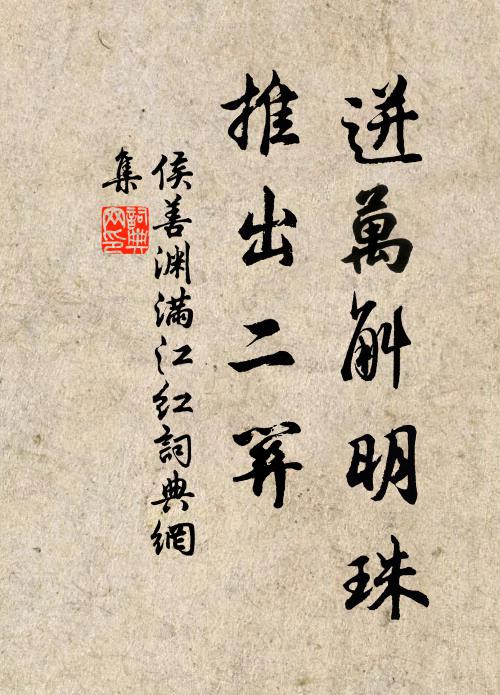 迸萬斛明珠
推出二
侯善渊滿江红詞典網
集
詞典網印